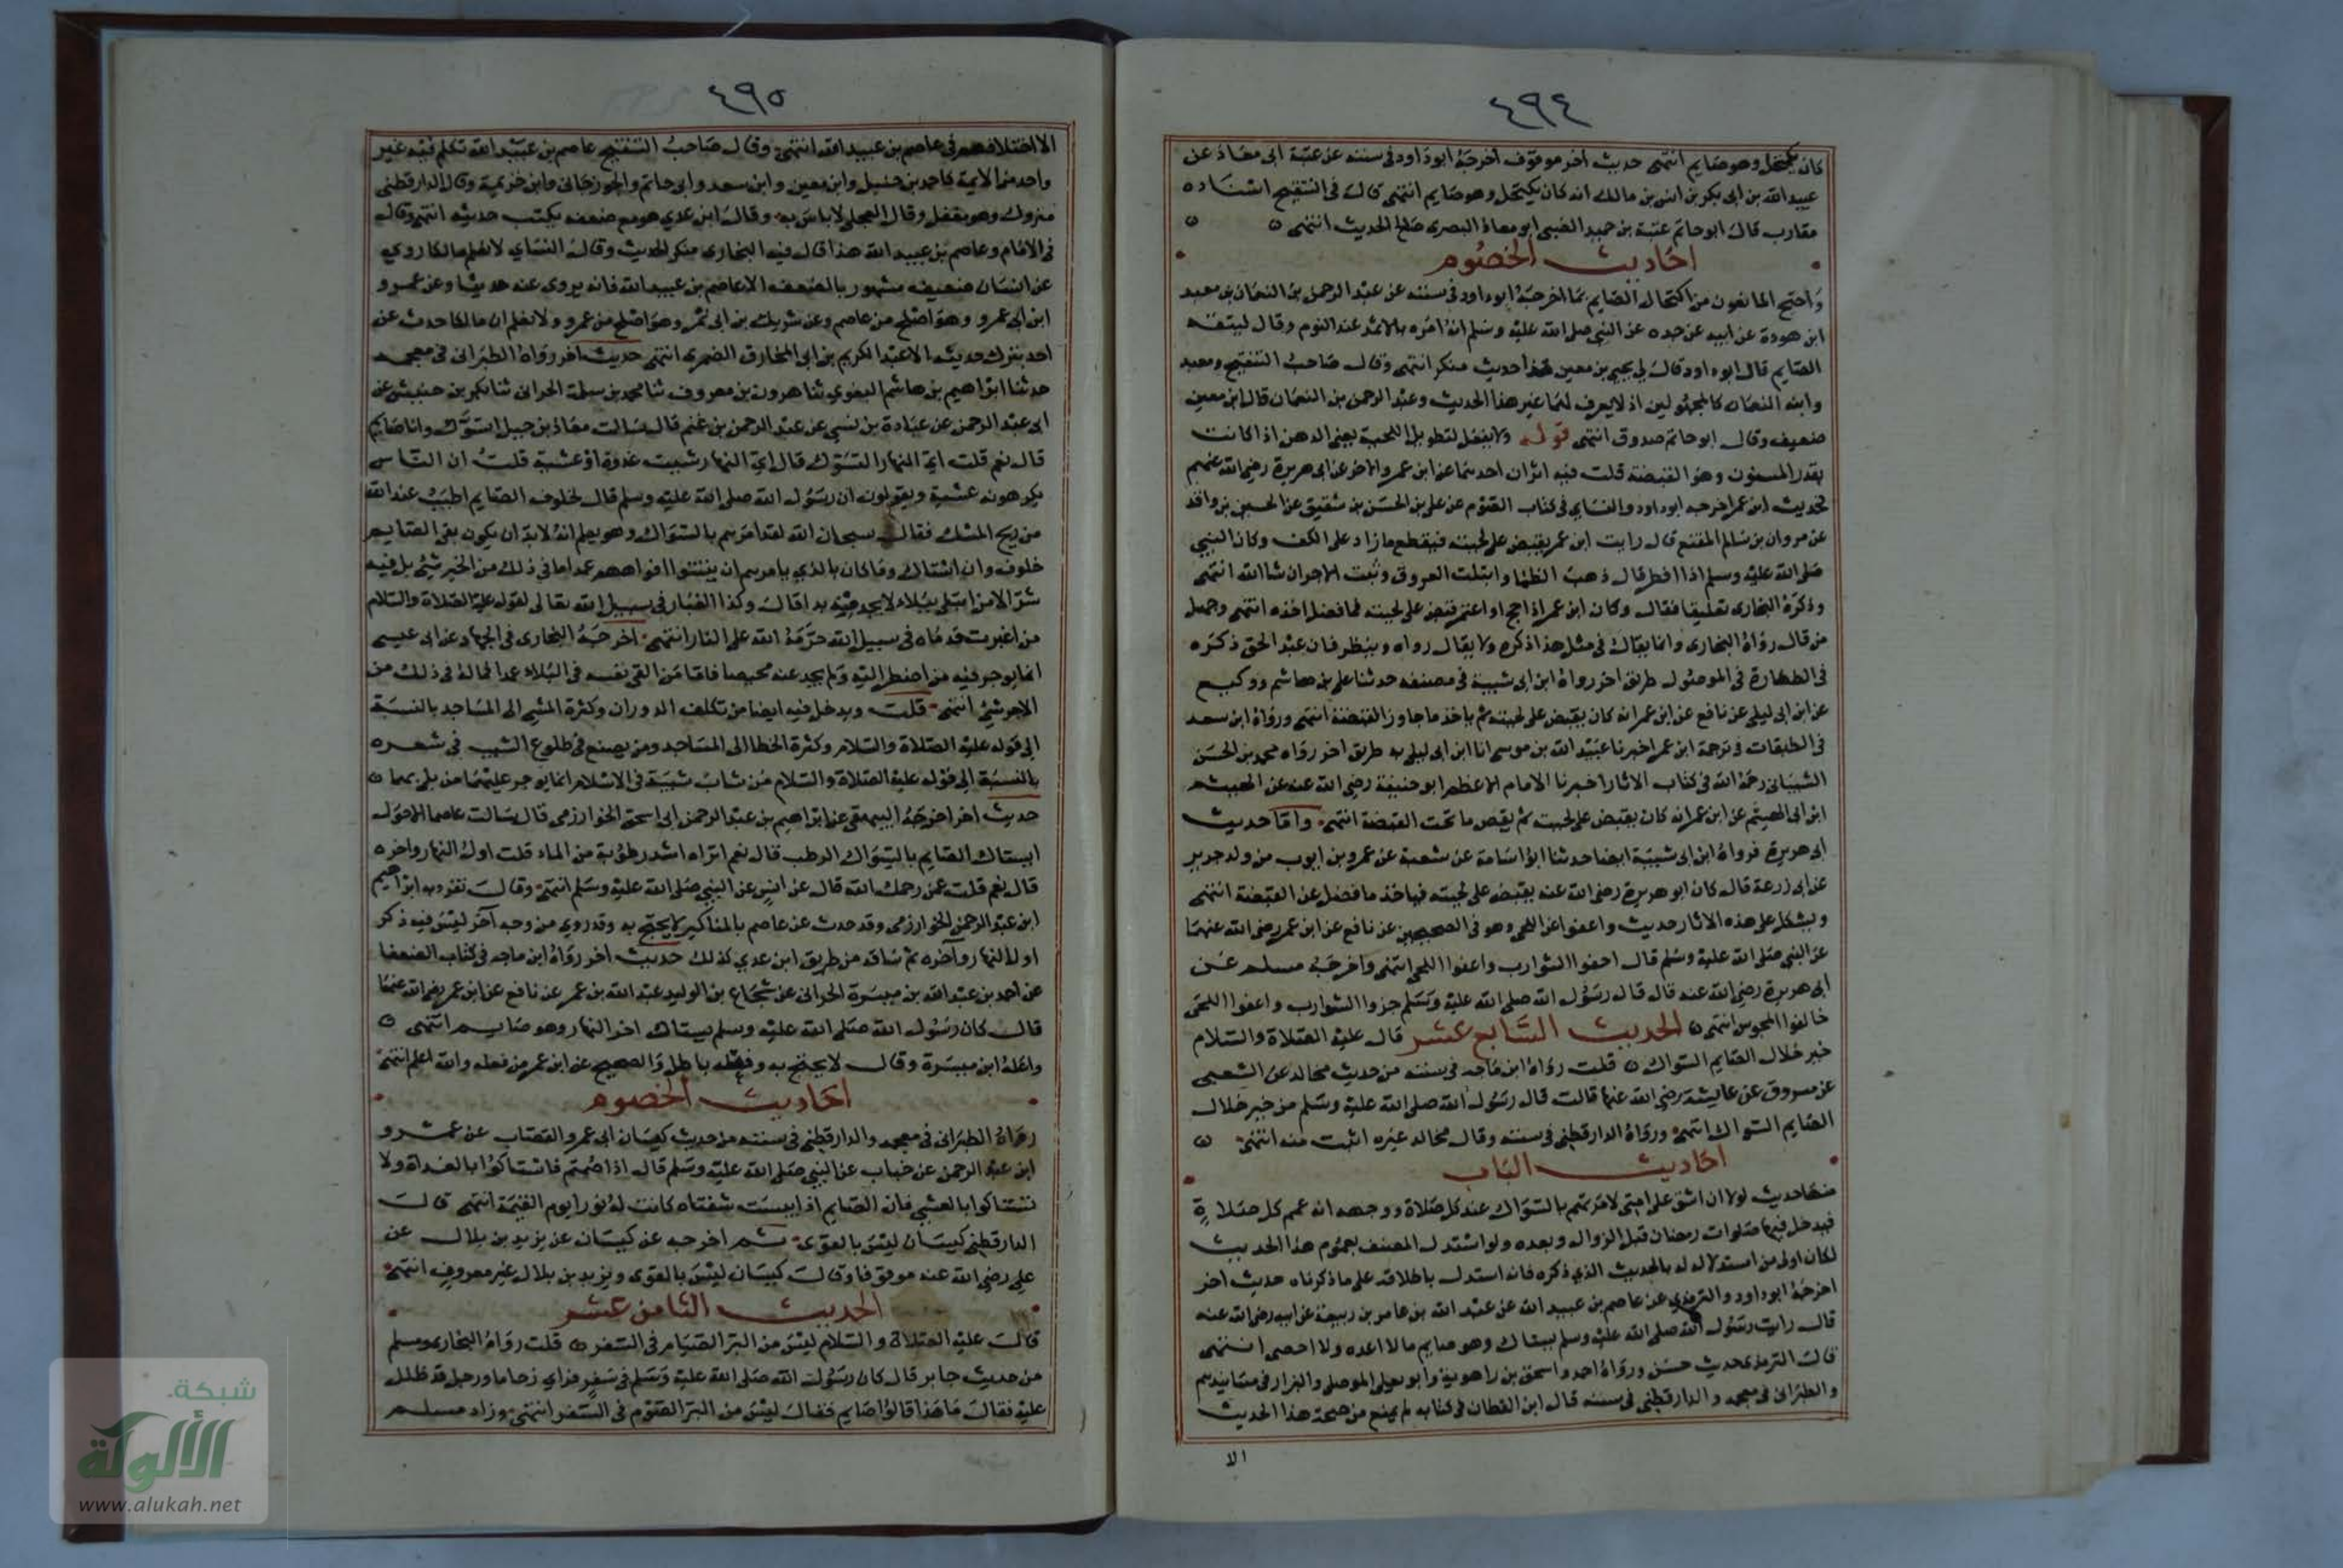 ٤٩٤
كان يكتحل وهو صايم انتهى حديث آخر موقوف أخرجه ابو داود في سننه عن عتبة ابى معاذ عن
عبيد الله بن ابى بكر بن انس بن مالك انه كان يكتحل وهو صايم انتهى قال في التنقيح اسناده
مقارب قال ابو حاتم عتبة بن حميد الضبى ابو معاذ البصرى صالح الحديث انتهى
احاديث الخصوم
واحتج المانعون من اكتحال الصايم بما اخرجه ابو داود في سننه عن عبد الرحمن بن النعمان بن معبد
ابن هودة عن ابيه عن جده عن النبي صلى الله عليه وسلم انه امره بالاثمد عند النوم وقال ليتقه
الصايم قال ابو داود قال لي يحيى بن معين هذا حديث منكر انتهى وقال صاحب التنقيح ومعبد
وابنه النعمان كالمجهولين اذ لا يعرف لهما غير هذا الحديث وعبد الرحمن بن النعمان قال ابن معين
ضعيف وقال ابو حاتم صدوق انتهى قوله ولا يفعل لتطويل اللحية يعنى الدهن اذا كانت
بقدر المسنون وهو القبضة قلت فيه اثران احدهما عن ابن عمر والاخر عن ابى هريرة رضي الله عنهم
فحديث ابن عمر اخرجه ابو داود والنساي في كتاب الصوم عن علي بن الحسن بن شقيق عن الحسين بن واقد
عن مروان بن سلم المقنع قال رايت ابن عمر يقبض على لحيته فيقطع ما زاد على الكف وكان النبي
صلى الله عليه وسلم اذا افطر قال ذهب الظما وابتلت العروق وثبت الاجر ان شا الله انتهى
وذكره البخارى تعليقا فقال وكان ابن عمر اذا حج او اعتمر قبض على لحيته فما فضل اخذه انتهى وجهل
من قال رواه البخارى وانما يقال في مثل هذا ذكره ولا يقال رواه وينظر فان عبد الحق ذكره
في الطهارة في الموصول طريق اخر رواه ابن ابى شيبة في مصنفه حدثنا علي بن هاشم ووكيع
عن ابن ابى ليلى عن نافع عن ابن عمر انه كان يقبض على لحيته ثم ياخذ ما جاوز القبضة انتهى ورواه ابن سعد
في الطبقات في ترجمة ابن عمر اخبرنا عبيد الله بن موسى انا ابن ابى ليلى به طريق اخر رواه محمد بن الحسن
الشيبانى رحمه الله في كتاب الاثار اخبرنا الامام الاعظم ابو حنيفة رضي الله عنه عن الهيثم
ابن ابى الهيثم عن ابن عمر انه كان يقبض على لحيته ثم يقص ما تحت القبضة انتهى واما حديث
ابى هريرة فرواه ابن ابى شيبة ايضا حدثنا ابو اسامة عن شعبة عن عمرو بن ايوب من ولد جرير
عن ابى زرعة قال كان ابو هريرة رضي الله عنه يقبض على لحيته فياخذ ما فضل عن القبضة انتهى
ويشكل على هذه الاثار حديث واعفوا عن اللحى وهو في الصحيحين عن نافع عن ابن عمر رضي الله عنهما
عن النبي صلى الله عليه وسلم قال احفوا الشوارب واعفوا اللحى انتهى واخرجه مسلم عن
ابى هريرة رضي الله عنه قال قال رسول الله صلى الله عليه وسلم جزوا الشوارب واعفوا اللحى
خالفوا المجوس انتهى الحديث السابع عشر قال عليه الصلاة والسلام
خير خلال الصايم السواك قلت رواه ابن ماجه في سننه من حديث مجالد عن الشعبى
عن مسروق عن عايشة رضي الله عنها قالت قال رسول الله صلى الله عليه وسلم من خير خلال
الصايم السواك انتهى ورواه الدارقطني في سننه وقال مجالد غيره اثبت منه انتهى
احاديث الباب
منها حديث لولا ان اشق على امتى لامرتهم بالسواك عند كل صلاة ووجهه انه عم كل صلاة
فيدخل فيها صلوات رمضان قبل الزوال وبعده ولو استدل المصنف بعموم هذا الحديث
لكان اولى من استدلاله بالحديث الذي ذكره فانه استدل باطلاقه على ما ذكرناه حديث اخر
اخرجه ابو داود والترمذي عن عاصم بن عبيد الله عن عبد الله بن عامر بن ربيعة عن ابيه رضي الله عنه
قال رايت رسول الله صلى الله عليه وسلم يستاك وهو صايم ما لا اعده ولا احصى انتهى
قال الترمذى حديث حسن ورواه احمد واسحق بن راهوية وابو يعلى الموصلى والبزار في مسانيدهم
والطبرانى في معجمه والدارقطني في سننه قال ابن القطان في كتابه لم يمنع من صحة هذا الحديث
الا
٤٩٥
الا اختلافهم في عاصم بن عبيد الله انتهى وقال صاحب التنقيح عاصم بن عبيد الله تكلم فيه غير
واحد من الايمة كاحمد بن حنبل وابن معين وابن سعد وابى حاتم والجوزجانى وابن خزيمة وقال الدارقطنى
متروك وهو مغفل وقال العجلى لا باس به وقال ابن عدي هو مع ضعفه يكتب حديثه انتهى وقال
في الامام وعاصم بن عبيد الله هذا قال فيه البخارى منكر الحديث وقال النساي لا نعلم مالكا روى
عن انسان ضعيف مشهور بالضعف الا عاصم بن عبيد الله فانه يروى عنه حديثا وعن عمرو
ابن ابى عمرو وهو اصلح من عاصم وعن شريك بن ابى نمر وهو اصلح من عمرو ولا نعلم ان مالكا حدث عن
احد يترك حديثه الا عبد الكريم بن ابى المخارق البصرى انتهى حديث اخر رواه الطبرانى في معجمه
حدثنا ابراهيم بن هاشم البغوي ثنا هرون بن معروف ثنا محمد بن سلمة الحرانى ثنا بكر بن خنيس عن
ابى عبد الرحمن عن عبادة بن نسي عن عبد الرحمن بن غنم قال سالت معاذ بن جبل اتسوك وانا صايم
قال نعم قلت اي النهار اتسوك قال اي النهار شيت غدوة او عشية قلت ان الناس
يكرهونه عشية ويقولون ان رسول الله صلى الله عليه وسلم قال لخلوف الصايم اطيب عند الله
من ريح المسك فقال سبحان الله لقد امرهم بالسواك وهو يعلم انه لا بد ان يكون بفى الصايم
خلوف وان استاك وما كان بالذي يامرهم ان ينتنوا افواههم عمدا ما في ذلك من الخير شي بل فيه
شر الا من ابتلى ببلاء لا يجد منه بدا قال وكذا الغبار في سبيل الله تعالى لقوله عليه الصلاة والسلام
من اغبرت قدماه في سبيل الله حرمه الله على النار انتهى اخرجه البخارى في الجهاد عن ابى عيسى
انما يوجر فيه من اضطر اليه ولم يجد عنه محيصا فاما من القى نفسه في البلاء عمدا فما له في ذلك من
الاجر شي انتهى قلت ويدخل فيه ايضا من تكلف الدوران وكثرة المشي الى المساجد بالنسبة
الى قوله عليه الصلاة والسلام وكثرة الخطا الى المساجد ومن يصنع في طلوع الشيب في شعره
بالنسبة الى قوله عليه الصلاة والسلام من شاب شيبة في الاسلام انما يوجر عليهما من بلى بهما
حديث اخر اخرجه البيهقى عن ابراهيم بن عبد الرحمن ابى اسحق الخوارزمى قال سالت عاصما الاحول
ايستاك الصايم بالسواك الرطب قال نعم اتراه اشد رطوبة من الماء قلت اول النهار واخره
قال نعم قلت عن رحمك الله قال عن انس عن النبي صلى الله عليه وسلم انتهى وقال تفرد به ابراهيم
ابن عبد الرحمن الخوارزمى وقد حدث عن عاصم بالمناكير لا يحتج به وقد روي من وجه آخر ليس فيه ذكر
اول النهار وآخره ثم ساقه من طريق ابن عدي كذلك حديث اخر رواه ابن ماجه في كتاب الضعفا
عن احمد بن عبد الله بن ميسرة الحرانى عن شجاع بن الوليد عبد الله بن عمر عن نافع عن ابن عمر رضي الله عنهما
قال كان رسول الله صلى الله عليه وسلم يستاك اخر النهار وهو صايم انتهى
واعله ابن ميسرة وقال لا يحتج به ورفعه باطل والصحيح عن ابن عمر من فعله والله اعلم انتهى
احاديث الخصوم
رواه الطبرانى في معجمه والدارقطني في سننه من حديث كيسان ابى عمر القصاب عن عمرو
ابن عبد الرحمن عن خباب عن النبي صلى الله عليه وسلم قال اذا صمتم فاستاكوا بالغداة ولا
تستاكوا بالعشي فان الصايم اذا يبست شفتاه كانت له نورا يوم القيمة انتهى قال
الدارقطني كيسان ليس بالقوى ثم اخرجه عن كيسان عن يزيد بن بلال عن
علي رضي الله عنه موقوفا وقال كيسان ليس بالقوى ويزيد بن بلال غير معروف انتهى
الحديث الثامن عشر
قال عليه الصلاة والسلام ليس من البر الصيام في السفر قلت رواه البخارى ومسلم
من حديث جابر قال كان رسول الله صلى الله عليه وسلم في سفر فراي زحاما ورجل قد ظلل
عليه فقال ما هذا قالوا صايم فقال ليس من البر الصوم في السفر انتهى وزاد مسلم
شبكة
الألوكة
www.alukah.net